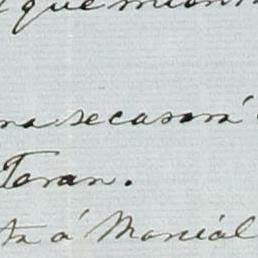 que
na se casará
Teran.
ta á Marcial